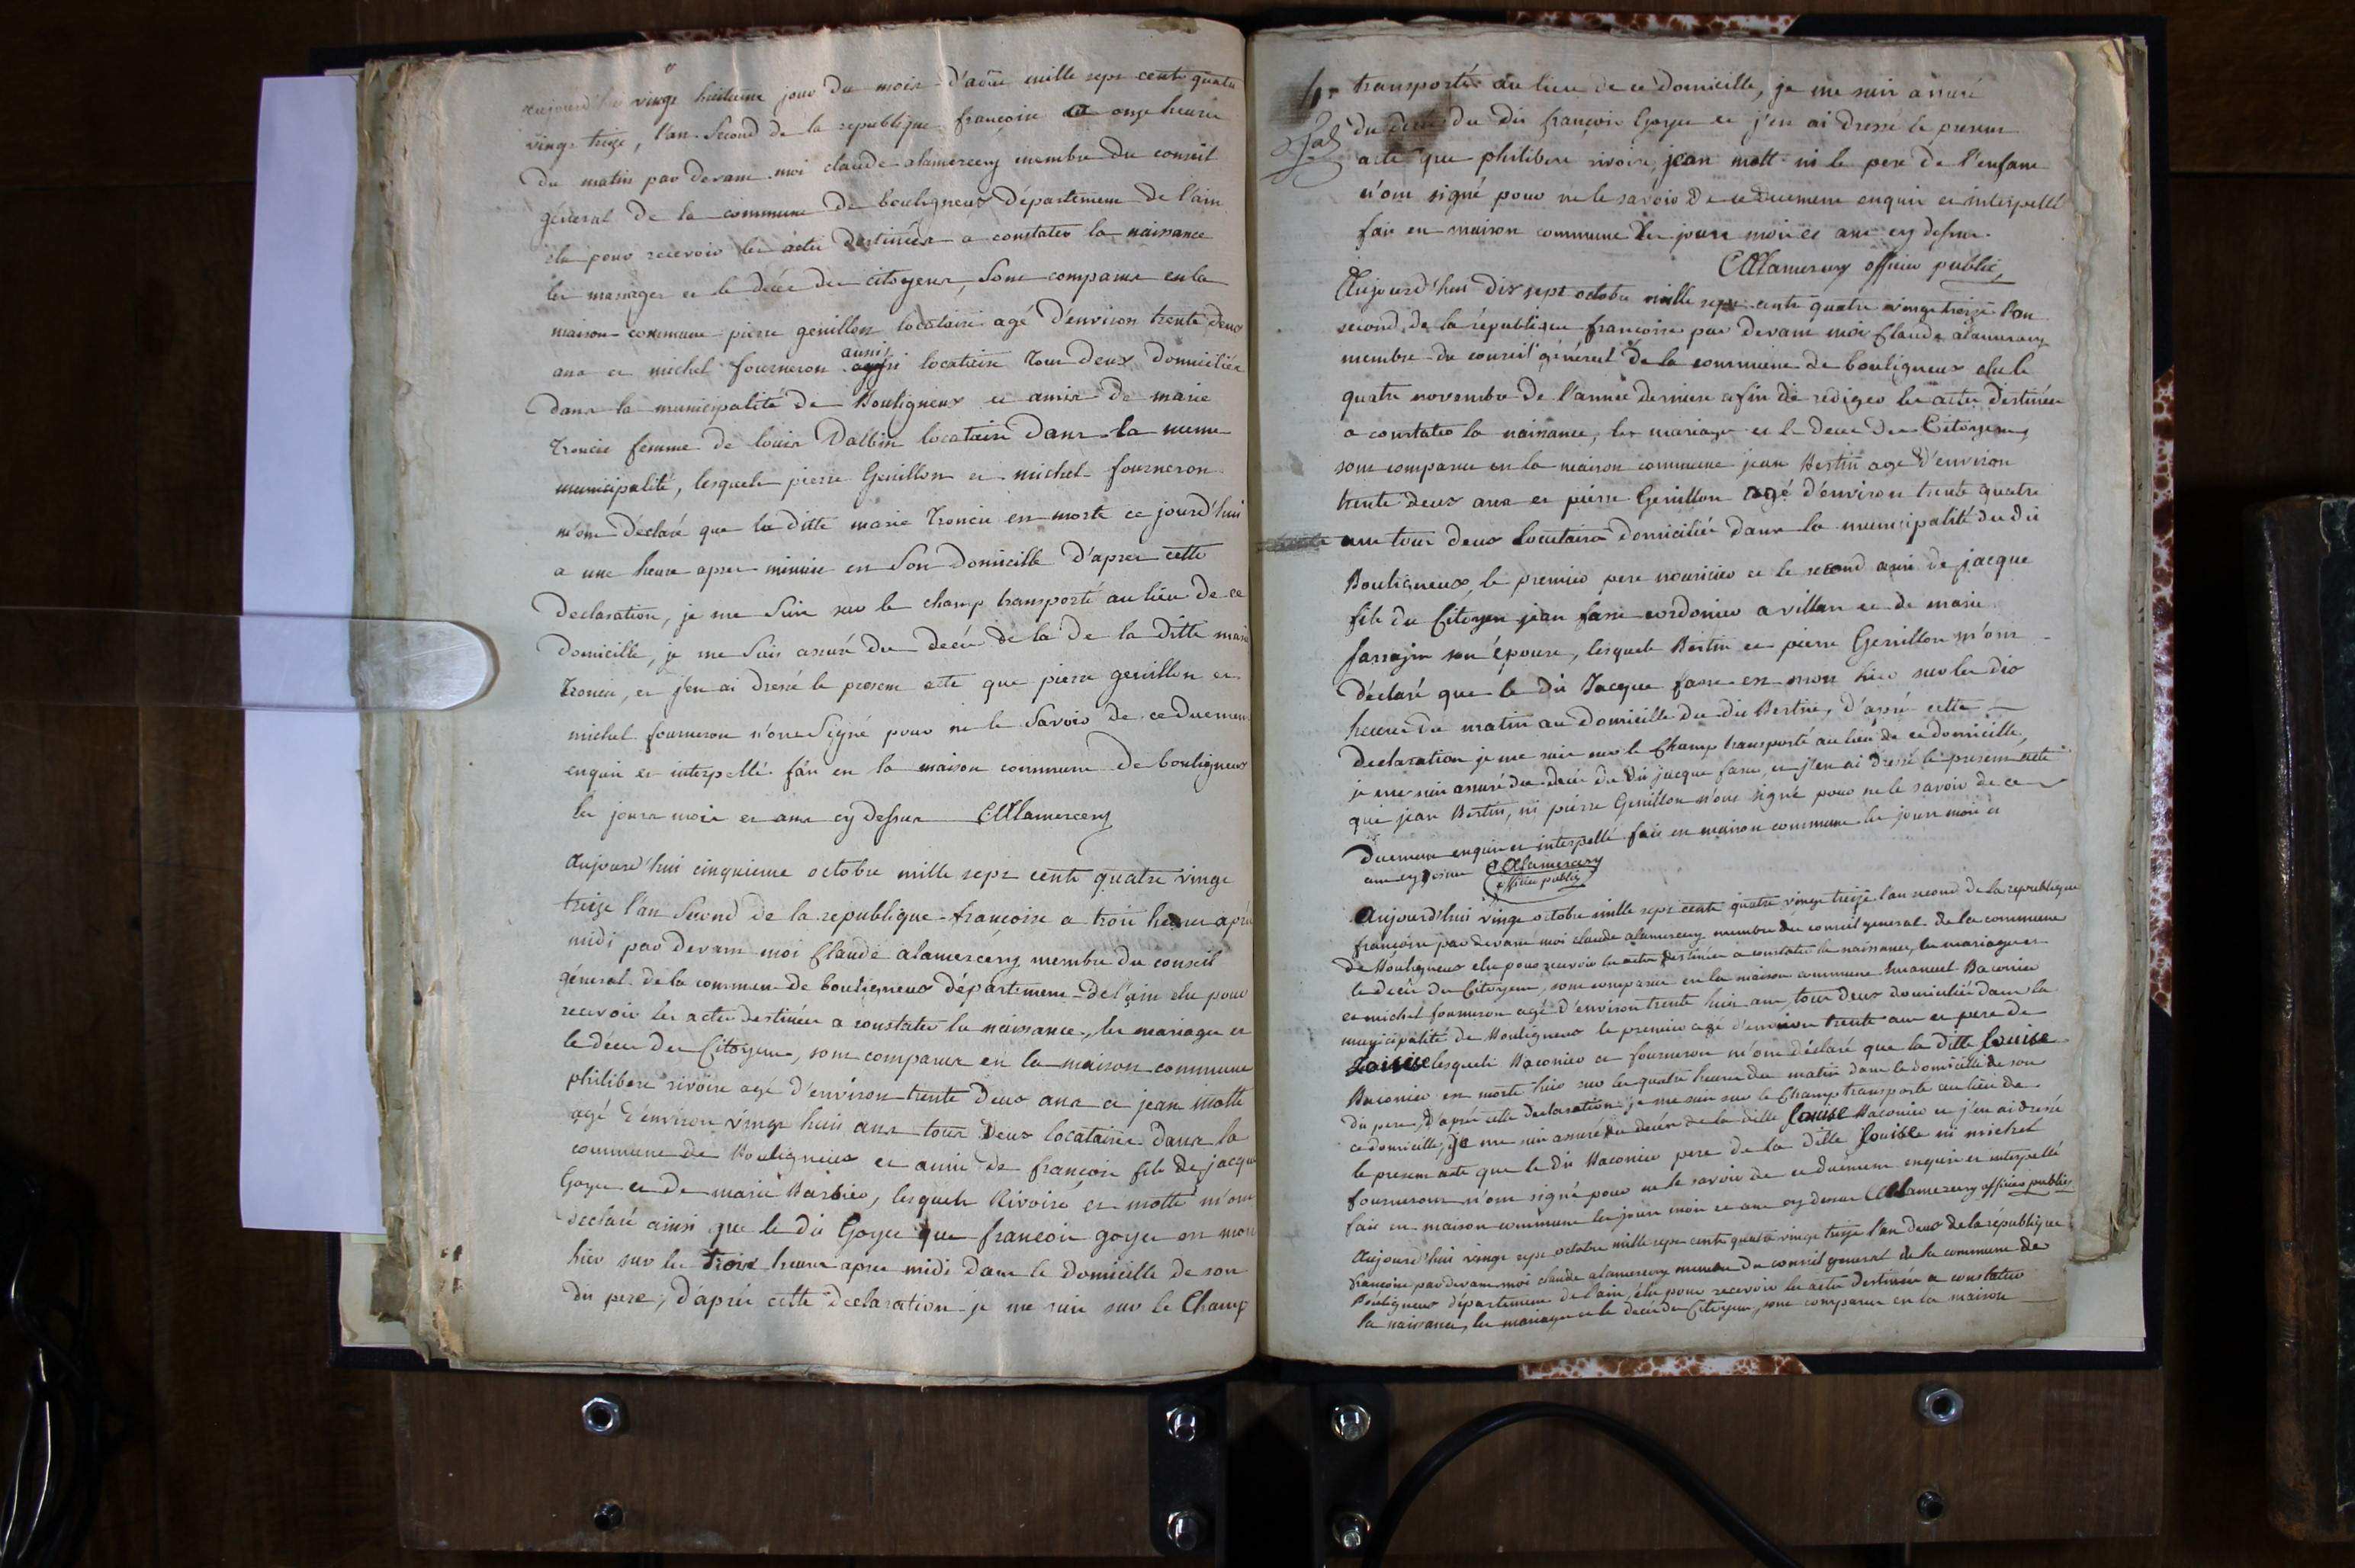 aujourd'hui vingt huitieme jour du mois d'aout mille sept cents quatre
vingt treize, l'an second de la republique françoise a onze heures
du matin par devant moi claude alamercery membre du conseil
géneral de la commune de bouligneux département de l'ain
élu pour recevoir les actes destinés a constater la naissance
les mariages et le décés des citoyens, sont comparus en la
maison commune pierre genillon locataire agé d'environ trente deux
ans et michel fourneron aussi locataire tous deux domiciliés
aussi
dans la municipalité de Bouligneux et amis de marie
Troncie femme de louis Dalbin locataire dans la meme
municipalité, lesquels pierre Genillon et michel fourneron
m'ont déclaré que la ditte marie Troncie est morte ce jourd'hui
a une heure apres minuit en son domicille d'apres cette
declaration, je me suis sur le champ transporté au lieu de ce
domicille, je me suis assuré du decés de la de la ditte marie
Troncie, et j'en ai dressé le present acte que pierre genillon et
michel fourneron n'ont signé pour ne le savoir de ce duement
enquis et interpellé fait en la maison commune de bouligneux
les jours mois et ans cy dessus CAlamercery
aujourd'hui cinquieme octobre mille sept cents quatre vingt
treize l'an second de la republique françoise a trois heures après
midi par devant moi Claude alamercery membre du conseil
géneral de la commune de bouligneux département de l'ain elu pour
recevoir les actes destinées a constater la naissance, les mariages et
le décés des Citoyens, sont comparus en la maison commune
philibert rivoire agé d'environ trente deux ans et jean motte
agé d'environ vingt huit ans tous deux locataires dans la
commune de Bouligneux et amis de françois fils de jacque
Goyer et de marie Barbier, lesquels Rivoire et motte m'ont
declaré ainsi que le dit Goyer que françois goyer est mort
hier sur les trois heures apres midi dans le domicille de son
dit pere, d'après cette declaration je me suis sur le Champ
transporté au lieu de ce domicille, je me suis assuré
du decés du dit françois Goyer et j'en ai dressé le present
acte que philibert rivoire, jean mott ni le pere de l'enfant
n'ont signé pour ne le savoir de ce duement enquis et interpellé
fait en maison commune les jours mois et ans cy dessus.
CAlamercery officier public
Aujourd'hui dix sept octobre mille sept cents quatre vingt treize l'an
second de la république françoise par devant moi Claude alamercery
membre du conseil géneral de la commune de bouligneux elu le
quatre novembre de l'année derniere afin de rédiger les actes destinées
a constater la naissance, les mariages et le deces des Citoyens,
sont comparus en la maison commune jean Bertin agé d'environ
trente deux ans et pierre Genillon agé d'environ trente quatre
ans tous deux locataires domiciliés dans la municipalité du dit
Bouligneux, le premier pere nouricier et le second ami de jacque
fils du Citoyen jean farre cordonier a villars et de marie
sarrajin son épouse, lesquels Bertin et pierre Genillon m'ont
déclaré que le dit Jacque farre est mort hier sur les dix
heures du matin au domicille du dit Bertin, d'apré cette
declaration je me suis sur le Champ transporté au lieu de ce domicille,
je me suis assuré du decés du dit jacque farre, et j'en ai dressé le present acte
que jean Bertin, ni pierre Genillon n'ont signé pour ne le savoir de ce
duement enquis et interpellé fait en maison commune les jours mois et
ans cy dessus CAlamercery
officier public
Aujourd'hui vingt octobre mille sept cents quatre vingt treize l'an second de la republique
françoise par devant moi claude alamercery membre du conseil general de la commune
de Bouligneux elu pour recevoir les actes destinées a constater la naissance, les mariages et
le décés des Citoyens, sont comparus en la maison commune Emanuel Baconier
et michel fourneron agé d'environ trente huit ans, tous deux domiciliés dans la
municipalité de Bouligneux le premier agé d'environ trente ans et pere de
Louise lesquels Baconier et fourneron m'ont déclaré que la ditte louise
Baconier est morte hier sur les quatre heures du matin dans le domicille de son
dit pere, d'aprés cette declaration je me suis sur le Champ transporté au lieu de
ce domicille, je me suis assuré du decés de la ditte louise Baconier et j'en ai dressé
le present acte que le dit Baconier pere de la ditte louise ni michel
fourneron n'ont signé pour ne le savoir de ce duement enquis et interpellé
fait en maison commune les jours mois et ans cy dessus CAlamercery officier public
Aujourd'hui vingt sept octobre mille sept cents quatre vingt treize l'an deux de la république
françoise par devant moi claude alamercery membre du conseil general de la commune de
Bouligneux département de l'ain, élu pour recevoir les actes destinées a constater
la naissance, les mariages et le decés des Citoyens, sont comparus en la maison